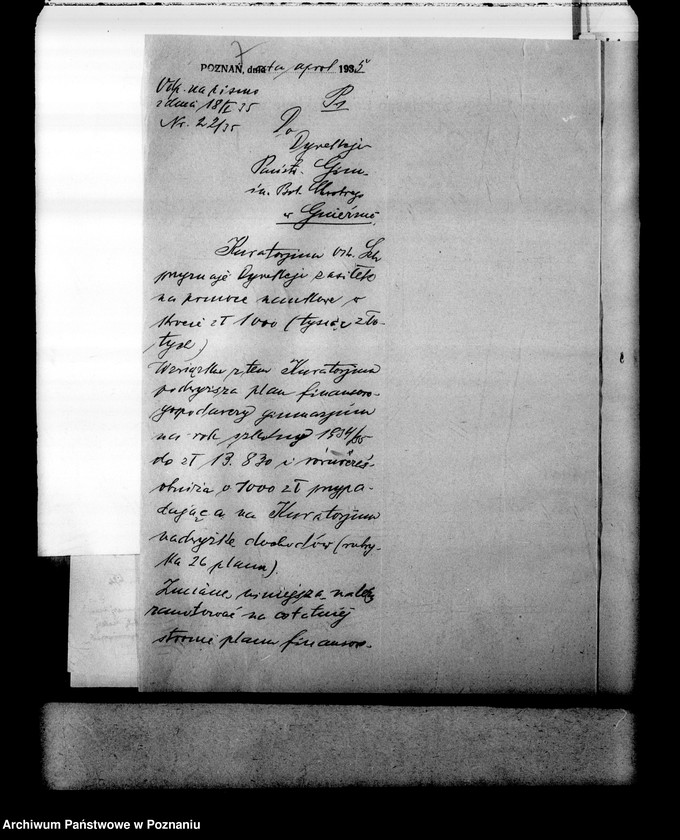 POZNAŃ, dnia april 1935
Odp. na pismo
z dnia 18/I 35
Nr. 22/35
Do
Dyrekcji
Państ. Gim.
im. Bol. Chrobrego
w Gnieźnie
Kuratorjum Okr. Szk.
przyznaje Dyrekcji zasiłek
na pomoce naukowe w
kwocie zł 1000 (tysiąc zło-
tych)
W związku z tem Kuratorjum
podwyższa plan finansowo-
gospodarczy gimnazjum
na rok szkolny 1934/35
do zł 13.830 i równocześ-
obniża o 1000 zł przypa-
dającą na Kuratorjum
nadwyżkę dochodów (rubry-
ka 26 planu).
Zmianę niniejszą należy
zanotować na ostatniej
stronie planu finansowo-
Archiwum Państwowe w Poznaniu